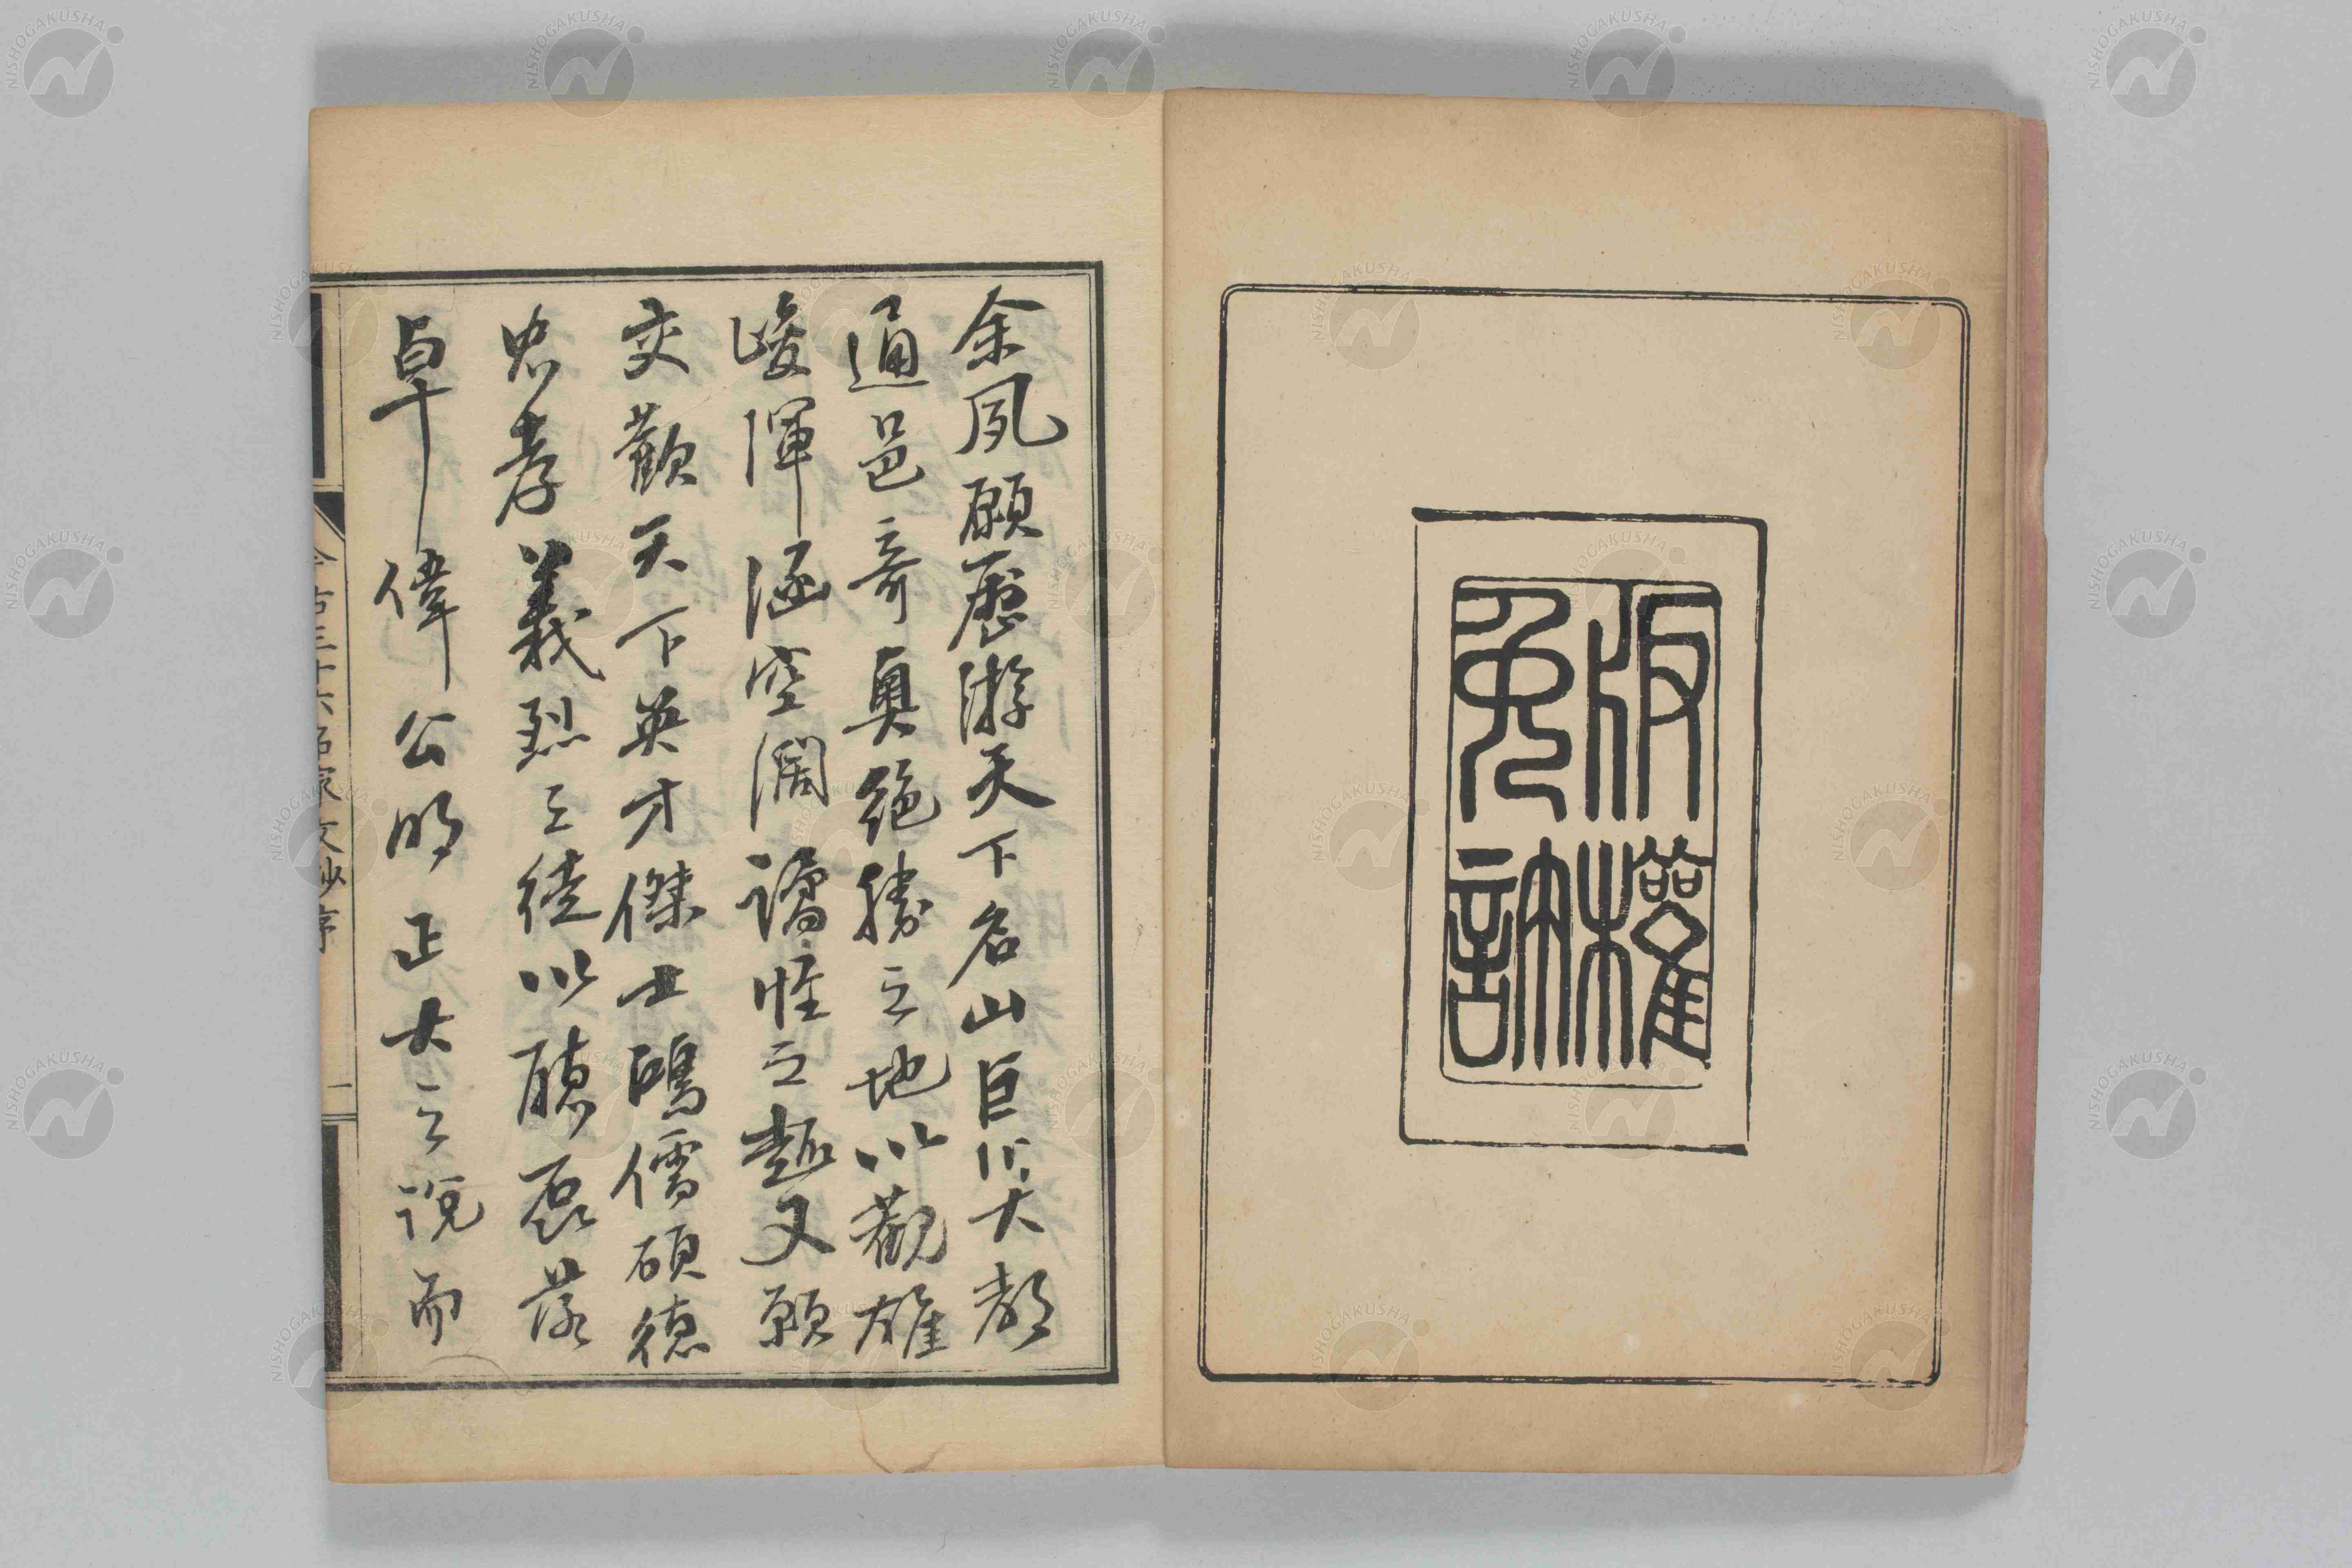 版權
免許
余夙願歷游天下名山巨川大都
通邑奇奧絕勝之地以觀雄
峻渾涵空濶譎怪之趣又願
交歡天下英才傑士鴻儒碩德
忠孝義烈之徒以聽磊落
卓偉公明正大之說而
NISHOGAKUSHA